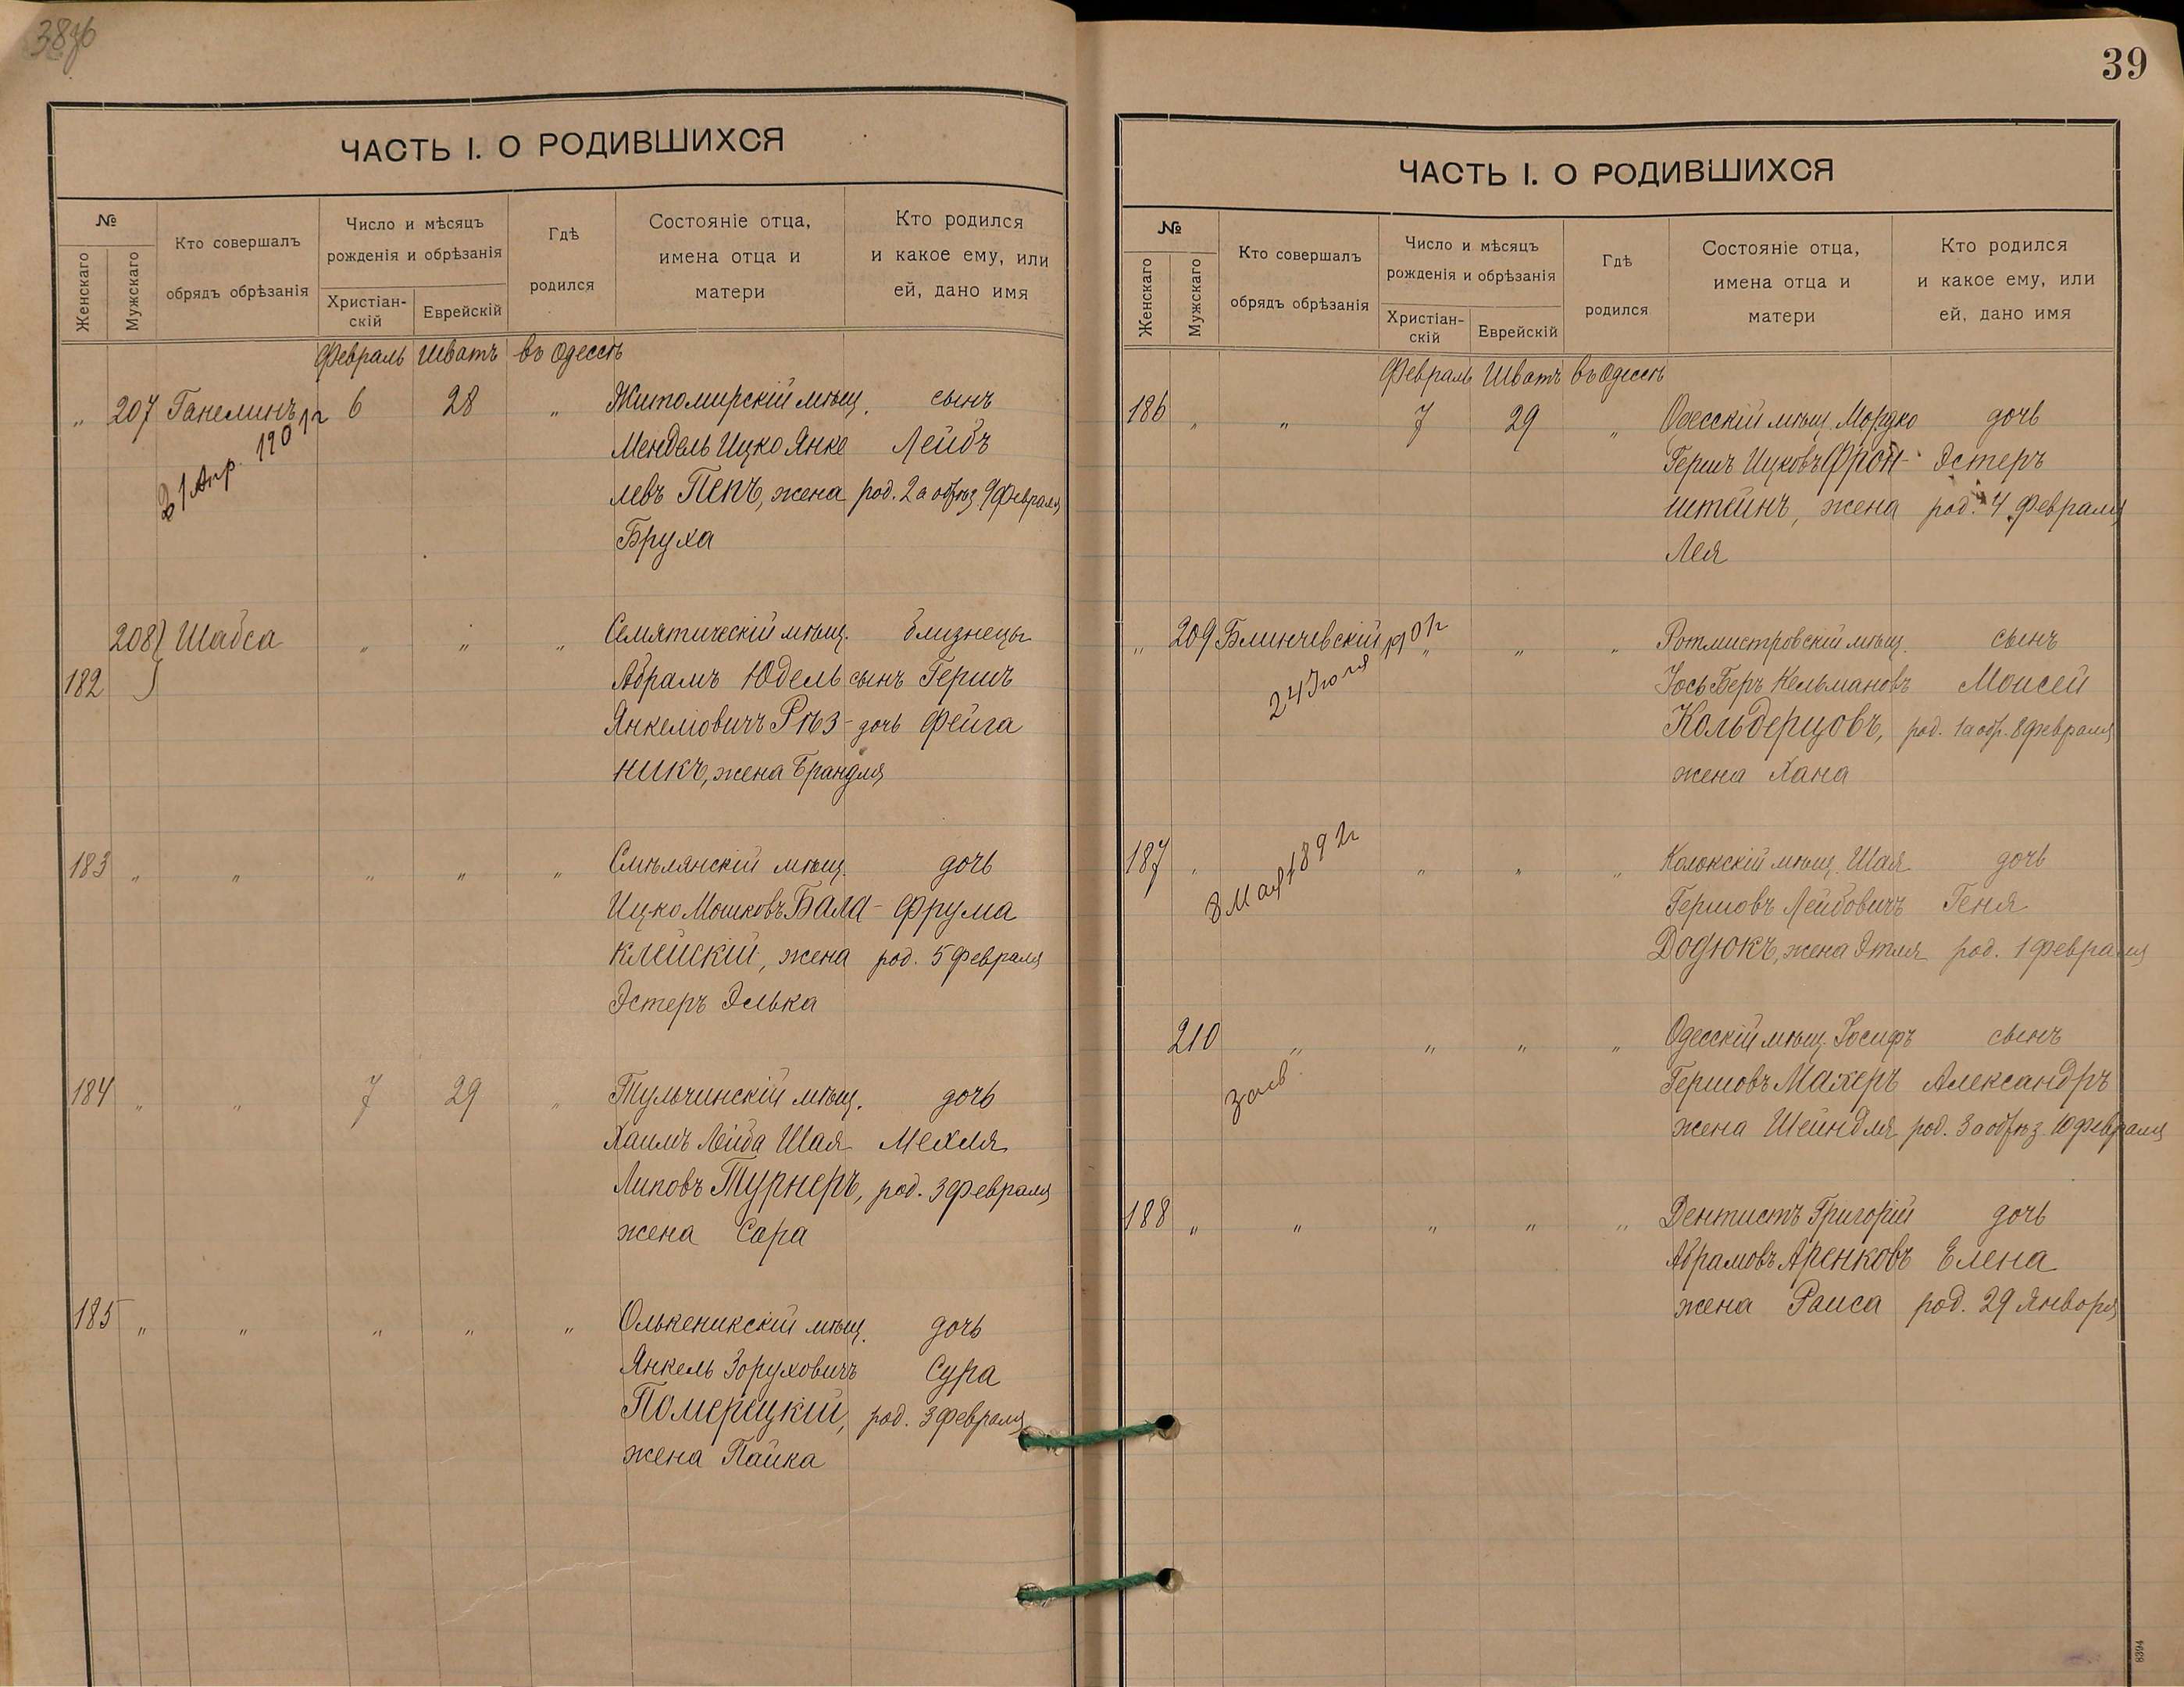 39
ЧАСТЬ I. О РОДИВШИХСЯ
№
Женскаго
Мужскаго
Кто совершалъ
обрядъ обрѣзанія
Число и мѣсяцъ
рожденія и обрѣзанія
Христіан-
скій
Еврейскій
Гдѣ
родился
Состояніе отца,
имена отца и
матери
Кто родился
и какое ему, или
ей, дано имя
Февраль Шватъ въ Одессѣ
„ 207 Ганелинъ 6 28 „ Житомирскій мѣщ. сынъ
Мендель Ицко Янке Лейбъ
левъ Пекъ, жена род. 2 а обрѣз. 9 Февраля
Бруха
208 Шабса „ „ „ Семятическій мѣщ. близнецы
182 Абрамъ Юдель сынъ Гершъ
Янкеліовичъ Рѣз- дочь Фейга
никъ, жена Брандля
183 „ „ „ „ „ Смѣлянскій мѣщ. дочь
Ицко Мошковъ Бала- Фрума
клейскій, жена род. 5 Февраля
Эстеръ Элька
184 „ „ 7 29 „ Тульчинскій мѣщ. дочь
Хаимъ Лейба Шая Мехля
Липовъ Турнеръ, род. 3 Февраля
жена Сара
185 „ „ „ „ „ Олькеникскій мѣщ. дочь
Янкель Зоруховичъ Сура
Померецкій, род. 3 Февраля
жена Пайка
ЧАСТЬ I. О РОДИВШИХСЯ
№
Женскаго
Мужскаго
Кто совершалъ
обрядъ обрѣзанія
Число и мѣсяцъ
рожденія и обрѣзанія
Христіан-
скій
Еврейскій
Гдѣ
родился
Состояніе отца,
имена отца и
матери
Кто родился
и какое ему, или
ей, дано имя
Февраль Шватъ въ Одессѣ
186 „ „ 7 29 „ Одесскій мѣщ. Мордко дочь
Гершъ Ицковъ Фрон- Эстеръ
штейнъ, жена род. 4 Февраля
Лея
„ 209 Блинчевскій „ „ „ Ротмистровскій мѣщ. сынъ
24 Іюля
Іось Беръ Кельмановъ Моисей
Кольдерцовъ, род. 1 а обр. 8 Февраля
жена Хана
187 „ 8 Мая 1892 г „ „ „ мѣщ. Шая дочь
Гершовъ Лейбовичъ Геня
Додюкъ, жена Этля род. 1 Февраля
210 „ „ „ „ Одесскій мѣщ. Іосифъ сынъ
Гершовъ Махеръ Александръ
жена Шейндля род. 3 а обрѣз. 10 Февраля
188 „ „ „ „ „ Дентистъ Григорій дочь
Абрамовъ Аренковъ Елена
жена Раиса род. 29 Января
8394